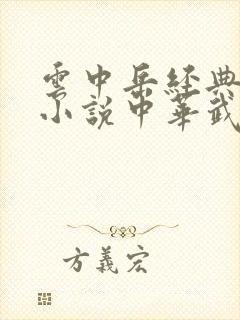 雲中岳经典
小說中華武
方義宏